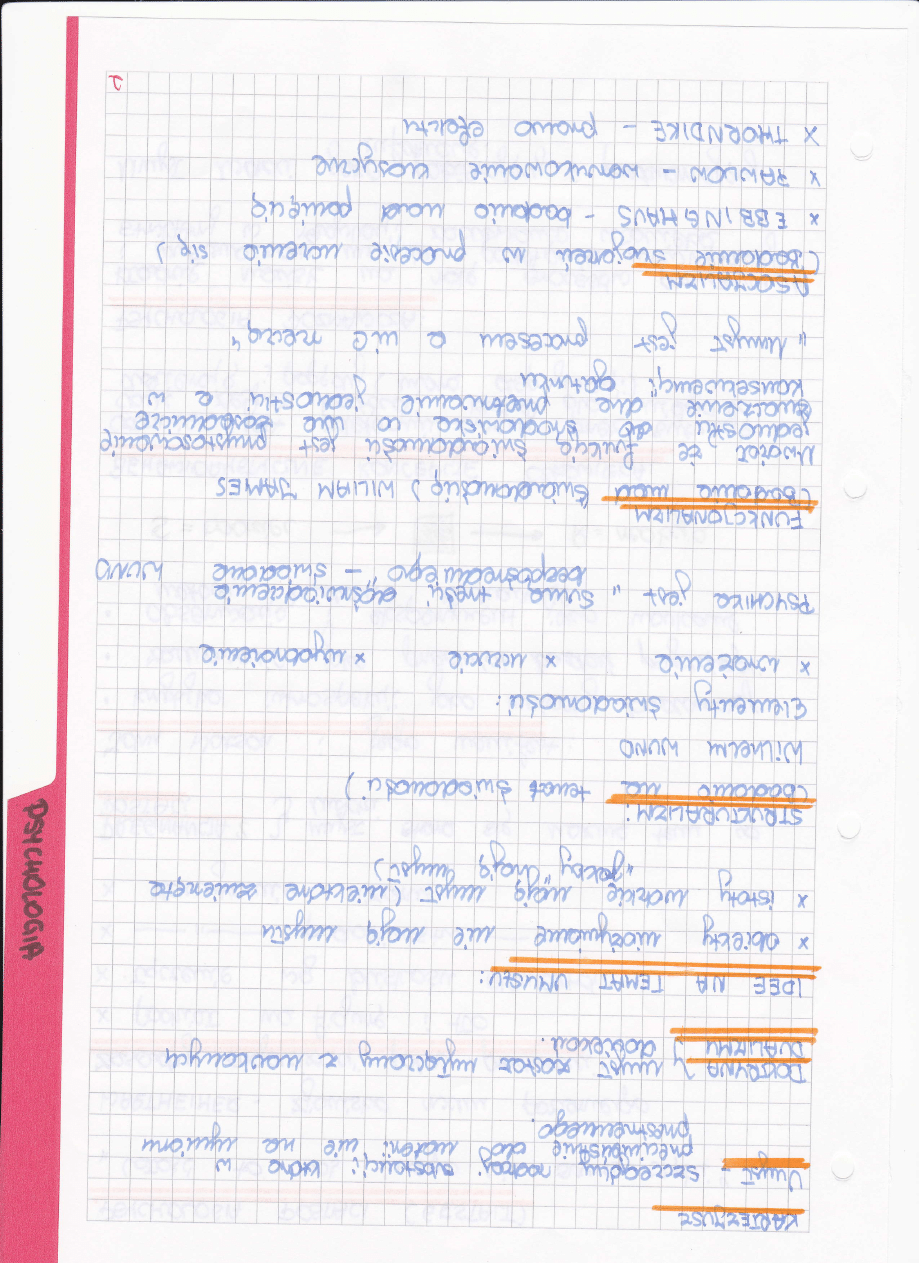 PSYCHOLOGIA
KARTEZJUSZ
Umysł - szczególny rodzaj substancji, która w
przeciwieństwie do materii nie ma wymiaru
przestrzennego.
DOKTRYNA } umysł został wyłączony z naukowych
DUALIZMU } dociekań.
IDEE NA TEMAT UMYSŁU:
x obiekty nieożywione nie mają umysłu
x istoty ludzkie mają umysł (niektóre zwierzęta
"jakby" mają umysł)
STRUKTURALIZM:
(badania na temat świadomości)
Wilhelm WUND
Elementy świadomości:
x wrażenie x uczucie x wyobrażenie
PSYCHIKA jest "sumą treści doświadczenia
bezpośredniego" - świadome WUND
FUNKCJONALIZM
(badanie nad świadomością) WILIAM JAMES
Uważał że funkcją świadomości jest przystosowanie
jednostki do środowiska co ma zasadnicze
znaczenie dla przetrwania jednostki a w
konsekwencji gatunku
"Umysł jest procesem a nie rzeczą"
ASOCJALIZM
(badanie skojarzeń w procesie uczenia się)
x EBBINGHAUS - badania nad pamięcią
x PAWŁOW - warunkowanie klasyczne
x THORNDIKE - prawo efektu
2